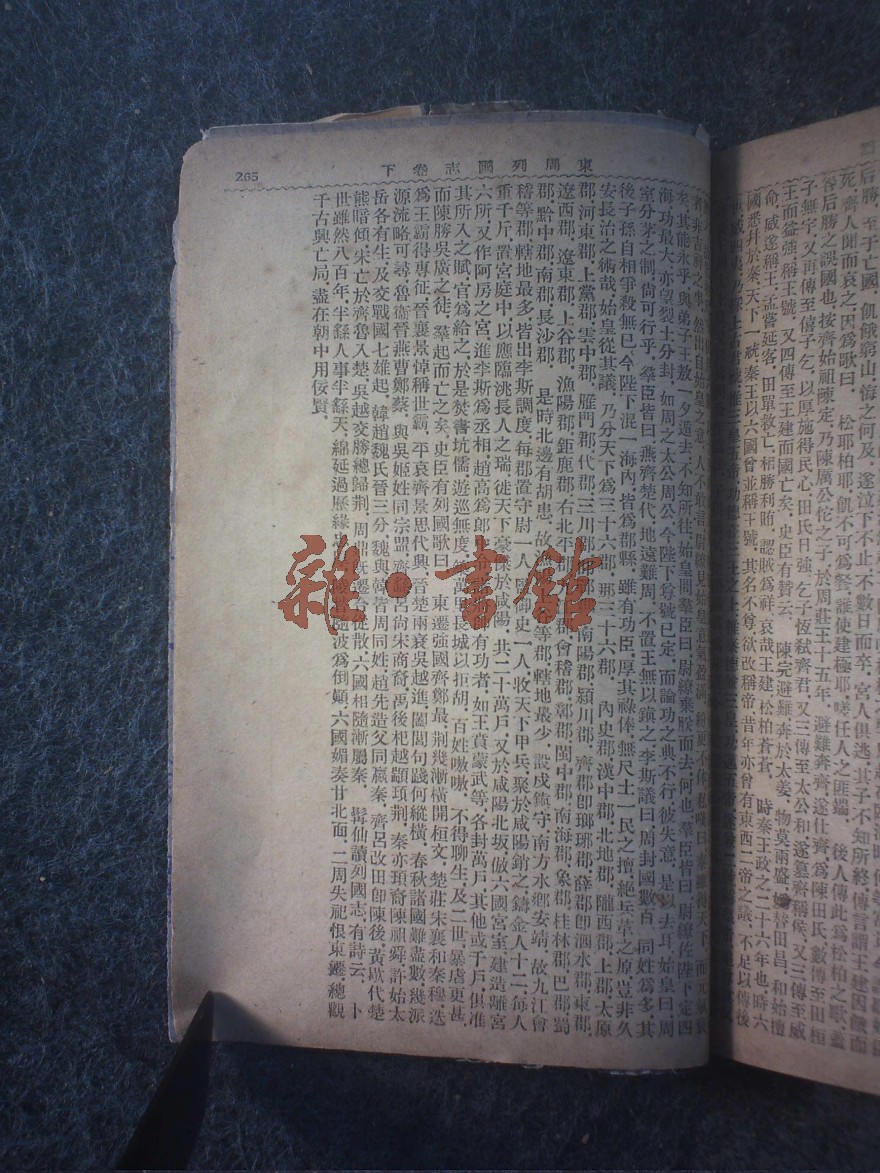 后勝、至于亡國、飢餓窮山、悔之何及、遂泣下不止、不數日而卒、宮人俱逃、其子不知所終、傳言謂王建因餓而
死、齊人聞而哀之、因爲歌曰、松耶柏耶、飢不可爲餐、誰使建極耶、嗟任人之匪端、後人傳此爲松柏之歌、蓋
咎后勝之誤國也、按齊始祖陳定、乃陳厲公佗之子、於周莊王十五年、避難奔齊、遂仕齊、爲陳田氏、數傳至田桓
子無宇、又再傳至僖子乞、以厚施得民心、田氏日強、乞子恆弑齊君、又三傳至太公和、遂篡齊稱侯、又三傳至威
王而益強、稱王號、又四傳至王建而國亡矣、史臣有贊云、陳完避難、奔於太姜、物莫兩盛、媯替田昌、和始擅
命、威遂稱王、孟嘗延客、田單救亡、相勝利賄、認賊爲祥、哀哉王建、松柏蒼蒼、時秦王政之二十六年也、時六
國悉幷於秦、天下一統、秦王以六國曾並稱王號、其名不尊、欲改稱帝、昔年亦曾有東西二帝之議、不足以傳後
東周列國志卷下
265
矣、其能永乎、與弟子王敖一夕遁去、不知所往、始皇問羣臣曰、尉繚棄朕而去、何也、羣臣皆曰、尉繚佐陛下定四
海、功最大、亦望裂土分封、如周之太公周公、今陛下尊號已定、而論功之典不行、彼失意、是以去耳、始皇曰、周
室分茅之制、尙可行乎、羣臣皆曰、燕齊楚代、地遠難周、不置王無以鎭之、李斯議曰、周封國數百、同姓爲多、其
後子孫自相爭殺無已、今陛下混一海內、皆爲郡縣、雖有功臣、厚其祿俸、無尺土一民之擅、絕兵革之原、豈非久
安長治之術哉、始皇從其議、乃分天下爲三十六郡、那三十六郡、內史郡、漢中郡、北地郡、隴西郡、上郡、太原
郡、河東郡、上黨郡、雲中郡、雁門郡、代郡、三川郡、南陽郡、潁川郡、齊郡卽瑯琊郡、薛郡卽泗水郡、東郡、
遼西郡、遼東郡、上谷郡、漁陽郡、鉅鹿郡、右北平郡、會稽郡、鄣郡、閩中郡、南海郡、象郡、桂林郡、巴郡、蜀
郡、黔中郡、南郡、長沙郡、是時北邊有胡患、故等郡、轄地最少、設戍鎭守、南方水鄉安靖、故九江會
稽等郡、轄地最多、皆出李斯調度、每郡置守尉一人、御史一人、收天下甲兵、聚於咸陽銷之、鑄金人十二、每人
重千石、置宮庭中、以應臨洮長人之瑞、徙天下豪於咸陽、共二十萬戶、又於咸陽北坂、倣六國宮室、建造離宮
六所、又作阿房之宮、進李斯爲丞相、趙高爲郎有功者、如王賁蒙武等、各封萬戶、其他或千戶、俱准
其所入之賦、官爲給之、於是焚書坑儒、遊巡無度、萬里長城以拒胡、百姓嗷嗷、不得聊生、及二世、暴虐更甚、
而陳勝吳廣之徒、羣起而亡之矣、史臣有列國歌曰、東遷強國齊鄭最、荆幾漸橫開桓文、楚莊宋襄和秦穆、迭
爲王霸得專征、晉襄景悼稱世霸、平哀齊景思代興、晉楚兩衰吳越進、闔閭句踐何縱橫、春秋諸國難盡數、幾派
源流略可尋、魯衞晉燕曹鄭蔡、與吳姬姓同宗盟、齊呂尙宋商裔、禹後杞越顓頊荆、秦亦頊裔陳祖舜、許始太
岳各有生、及交戰國七雄起、韓趙魏氏晉三分、魏與韓皆周同姓、趙先造父同嬴秦、齊呂改田卽陳後、黃歇代楚
熊暗傾、宋亡於齊魯入楚、吳越交勝總歸荆、周鼎旣遷合從散、六國相隨漸屬秦、髯仙讀列國志、有詩云、卜
世雖然八百年、半繇人事半繇天、綿延過歷緣隨波爲倒顚、六國媚秦甘北面、二周失祀恨東遷、總觀
千古興亡局、盡在朝中用佞賢、
雜·書館